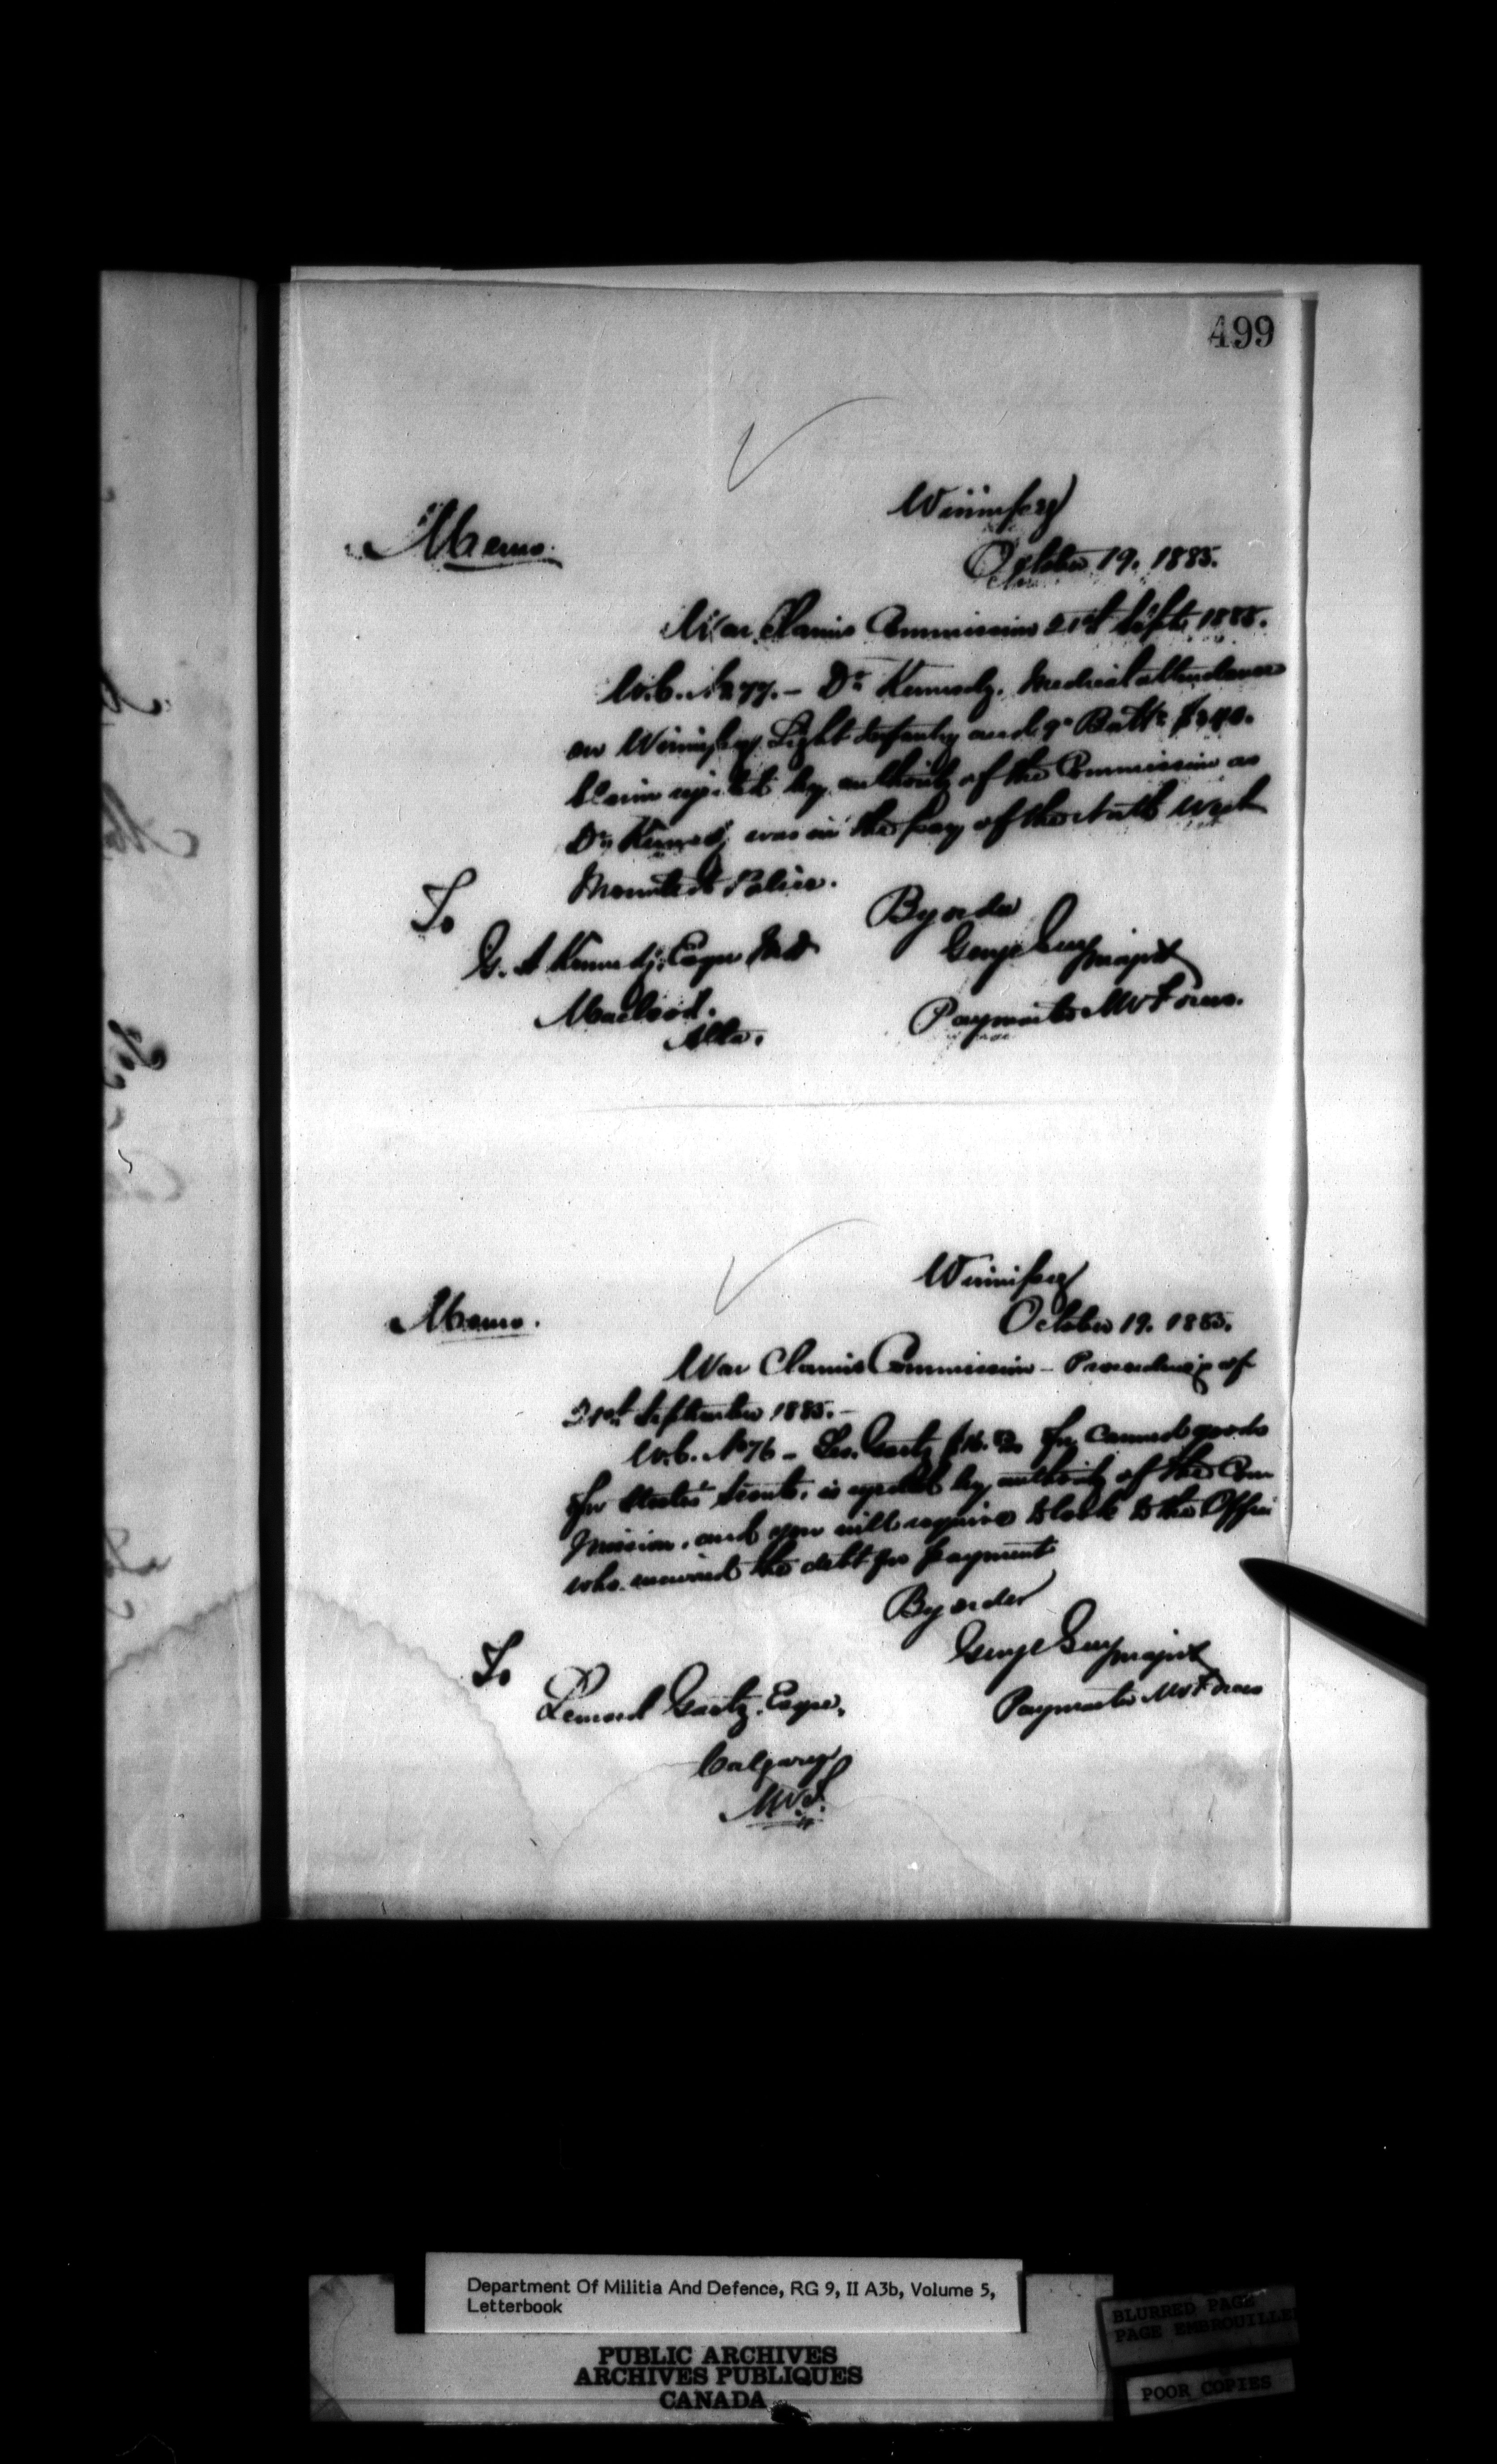 499
Winnipeg
Memo.
October 19. 1885.
War Claims Commission 21st Septr 1885.
W.C. No 277. - Dr Kennedy. Medical attendance
on Winnipeg Light Infantry and 9th Battn $240.
Claim rejected by authority of the Commission as
Dr Kennedy was in the pay of the North West
Mounted Police.
To
By order
G. A Kennedy, Esqre MD
George Guy Major
Macleod.
Alta.
Paymaster NW Forces.
Winnipeg
Memo.
October 19. 1885.
War Claims Commission - Proceedings of
21st September 1885. -
W.C. No 76 - Leo. Gaetz for canned goods
for Scouts, is rejected by authority of the Com
mission, and you will require to look to the Officer
who incurred the debt for payment
By order
To
George Guy Major
Leonard Gaetz, Esqre,
Paymaster NW Forces
Calgary
NWT.
Department Of Militia And Defence, RG 9, II A3b, Volume 5,
Letterbook
PUBLIC ARCHIVES
ARCHIVES PUBLIQUES
CANADA
BLURRED PAGE
PAGE EMBROUILLEE
POOR COPIES